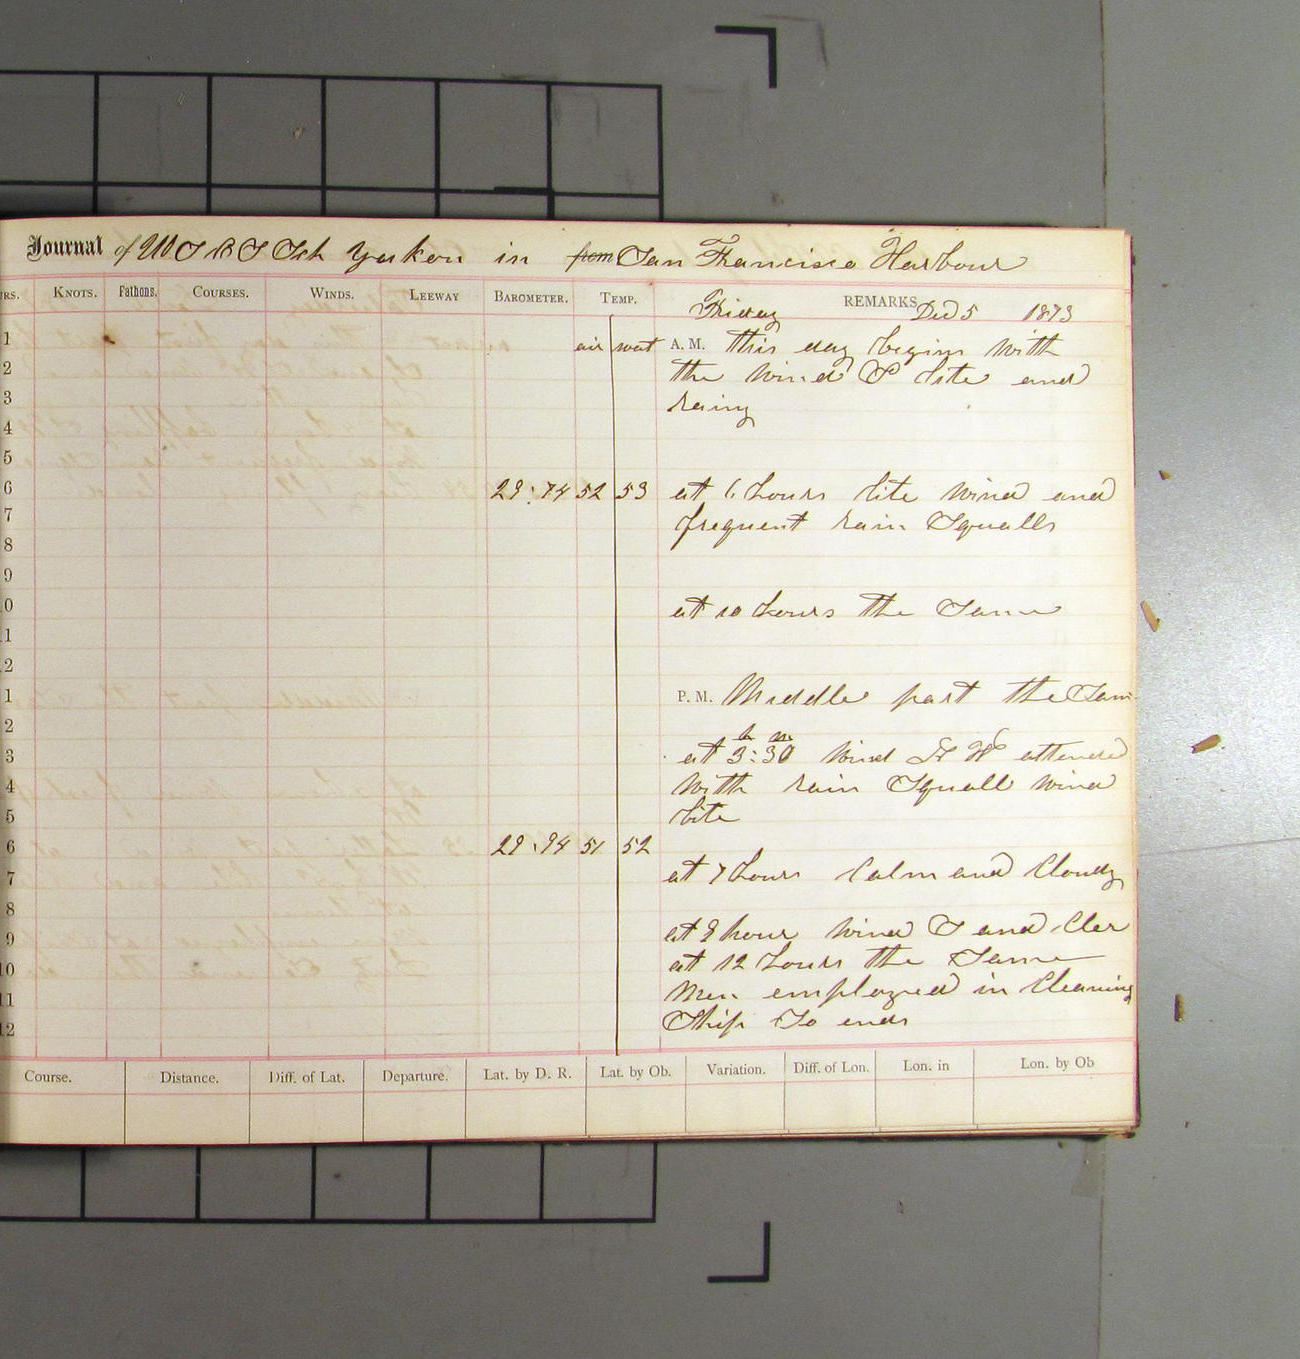 Journal of U S C S Sch Yukon in from San Francisco Harbour
RS. KNOTS. Fathons. COURSES. WINDS. LEEWAY BAROMETER. TEMP. REMARKS
Friday Dec 5 1873
1 air wat A. M. this day begins with
2 the wind S lite and
3 rainy
4
5
6 29:74 52 53 at 6 hours lite wind and
7 frequent rain Squalls
8
9
0 at 10 hours the Same
1
2
1 P. M. Middle part the Sam
2 h m
3 at 3:30 wind N W attended
4 with rain Squall wind
5 lite
6 29.94 51 52
7 at 7 hours Calm and Cloudy
8
9 at 9 hour wind S and Cler
10 at 12 hours the Same
11 Men employed in Cleaning
12 Ship So ends
Course. Distance. Diff. of Lat. Departure. Lat. by D. R. Lat. by Ob. Variation. Diff. of Lon. Lon. in Lon. by Ob